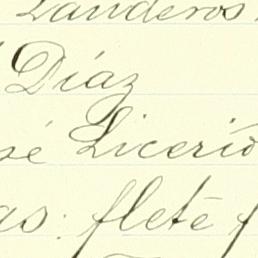 Landeros
Díaz
sé Licerio
as: flete f